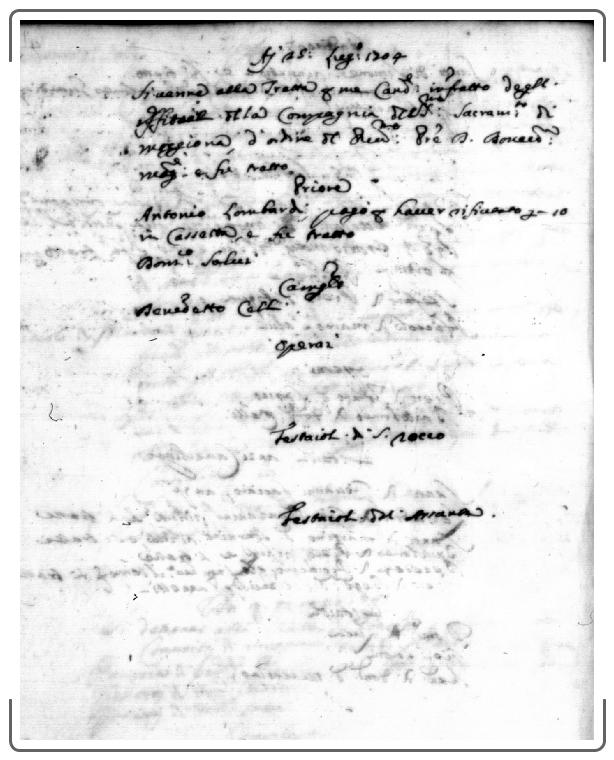 Aj 25: Lug:o 1704
Si venne alla Tratta p me Canc:e infratto degll
Offitiali della Compagnia del SS:mo Sacram:to di
Moggiona d'ordine del Rev:do Pre D.
e fu tratto
Priore
Antonio Lombardi pagò p haver rifiutato 10
in Cassetta, e fu tratto
Dom:co
Camg:o
Benedetto Cell
Operai
Festaioli di S. Rocco
Festaioli dell Assunta.